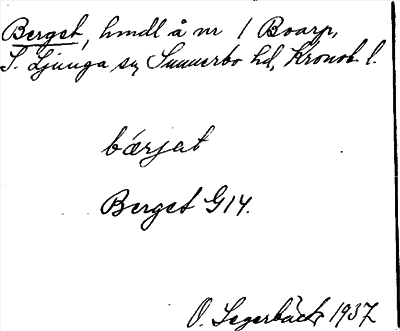 Berget, hmdl å nr 1 Boarp,
S. Ljunga sn, Sunnerbo hd, Kronob. l.
bærjat
Berget G14.
O. Segerbäck 1937